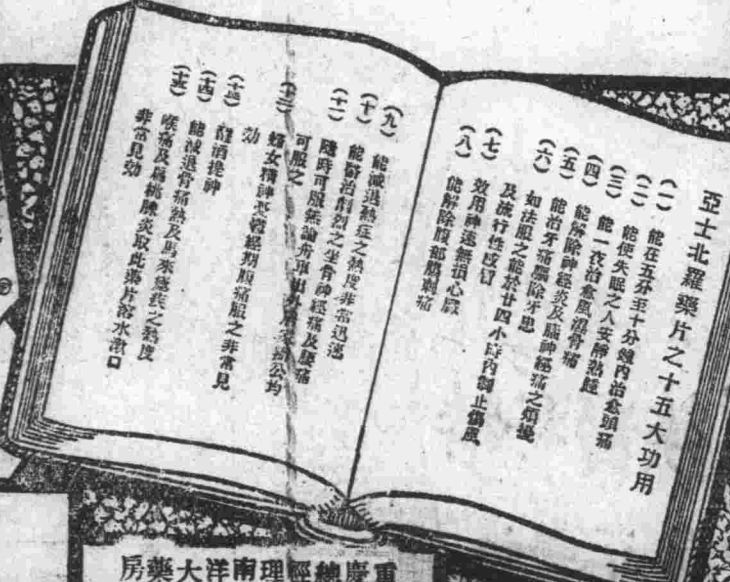 亞士北羅藥片之十五大功用
(一) 能在五分至十分鐘內治愈頭痛
(二) 能使失眠之人安靜熟睡
(三) 能一夜治愈風濕骨痛
(四) 能解除神經炎及腦神經痛之煩擾
(五) 能治牙痛驅除牙患
(六) 如法服之能於廿四小時內制止傷風
及流行性感冒
(七) 效用神速無損心臟
(八) 能解除腹部刺痛
(九) 能減退熱症之熱度非常迅速
(十) 能醫治劇烈之坐骨神經痛及腰痛
(十一) 隨時可服無論舟車出外公均
可服之
(十二) 婦女精神憂鬱經期腹痛服之非常見
効
(十三) 醒酒提神
(十四) 能減退骨痛熱及馬來瘧疾之熱度
(十五) 喉痛及扁桃腺炎取此藥片溶水漱口
非常見効
重慶總經理南洋大藥房